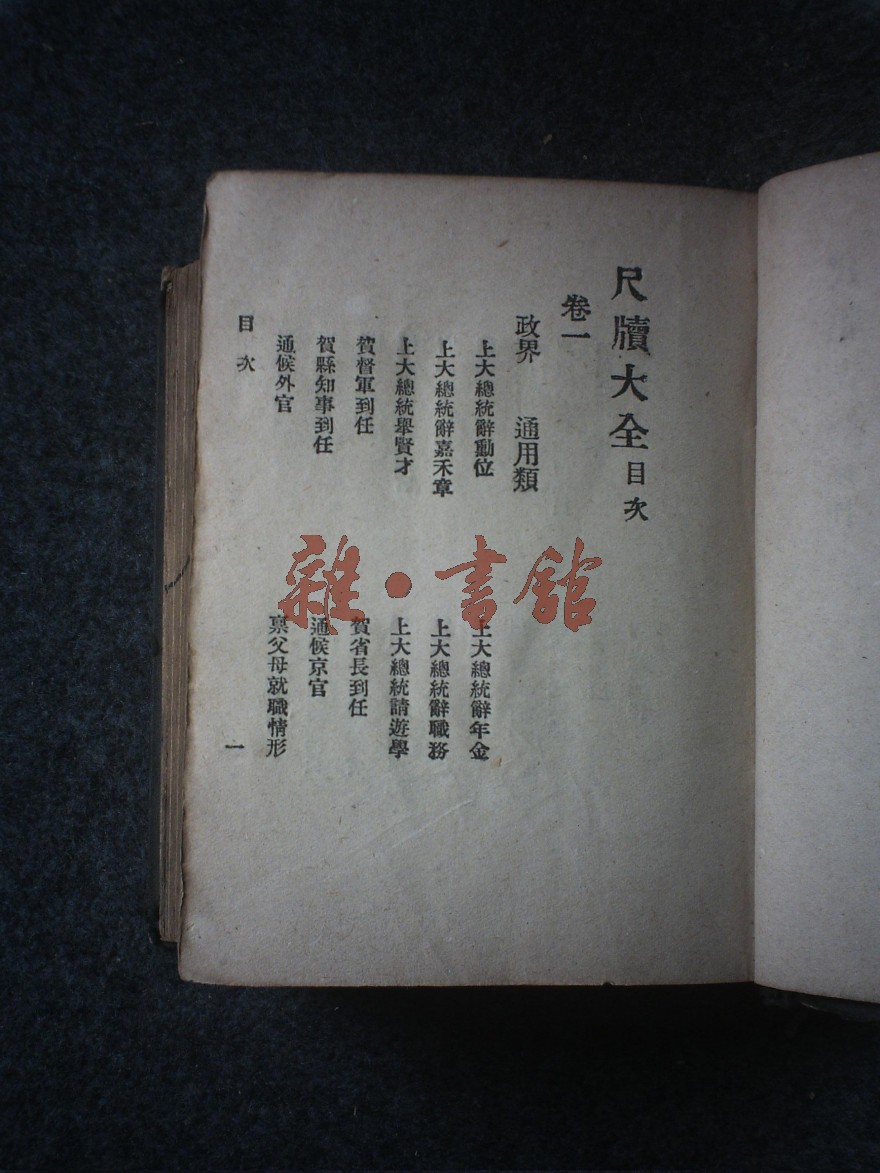 尺牘大全目次
卷一
政界 通用類
上大總統辭勳位 上大總統辭年金
上大總統辭嘉禾章 上大總統辭職務
上大總統舉賢才 上大總統請遊學
賀督軍到任 賀省長到任
賀縣知事到任 通候京官
通候外官 禀父母就職情形
目次 一
雜·書館